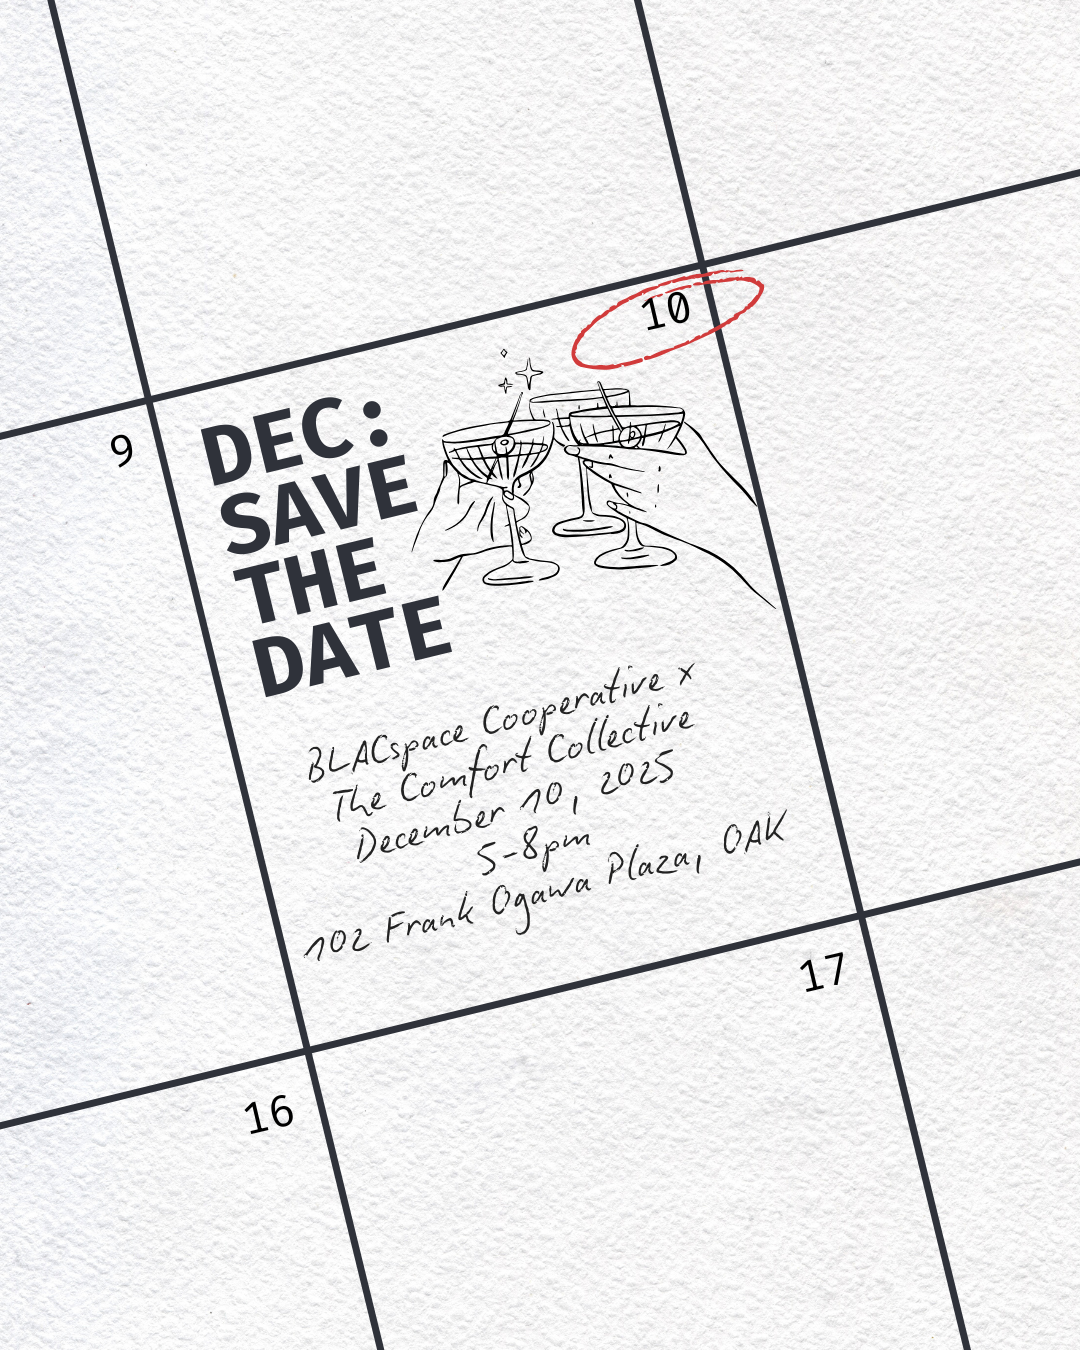 10
9
DEC:
SAVE
THE
DATE
BLACspace Cooperative x
The Comfort Collective
December 10, 2025
5-8pm
102 Frank Ogawa Plaza, OAK
17
16